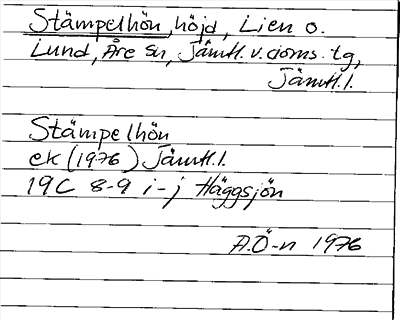 Stämpelhön, höjd, Lien o.
Lund, Åre sn, Jämtl. v. doms. tg,
Jämtl. l.
Stämpelhön
ek (1976) Jämtl. l.
19C 8-9 i-j Häggsjön
A.Ö-n 1976